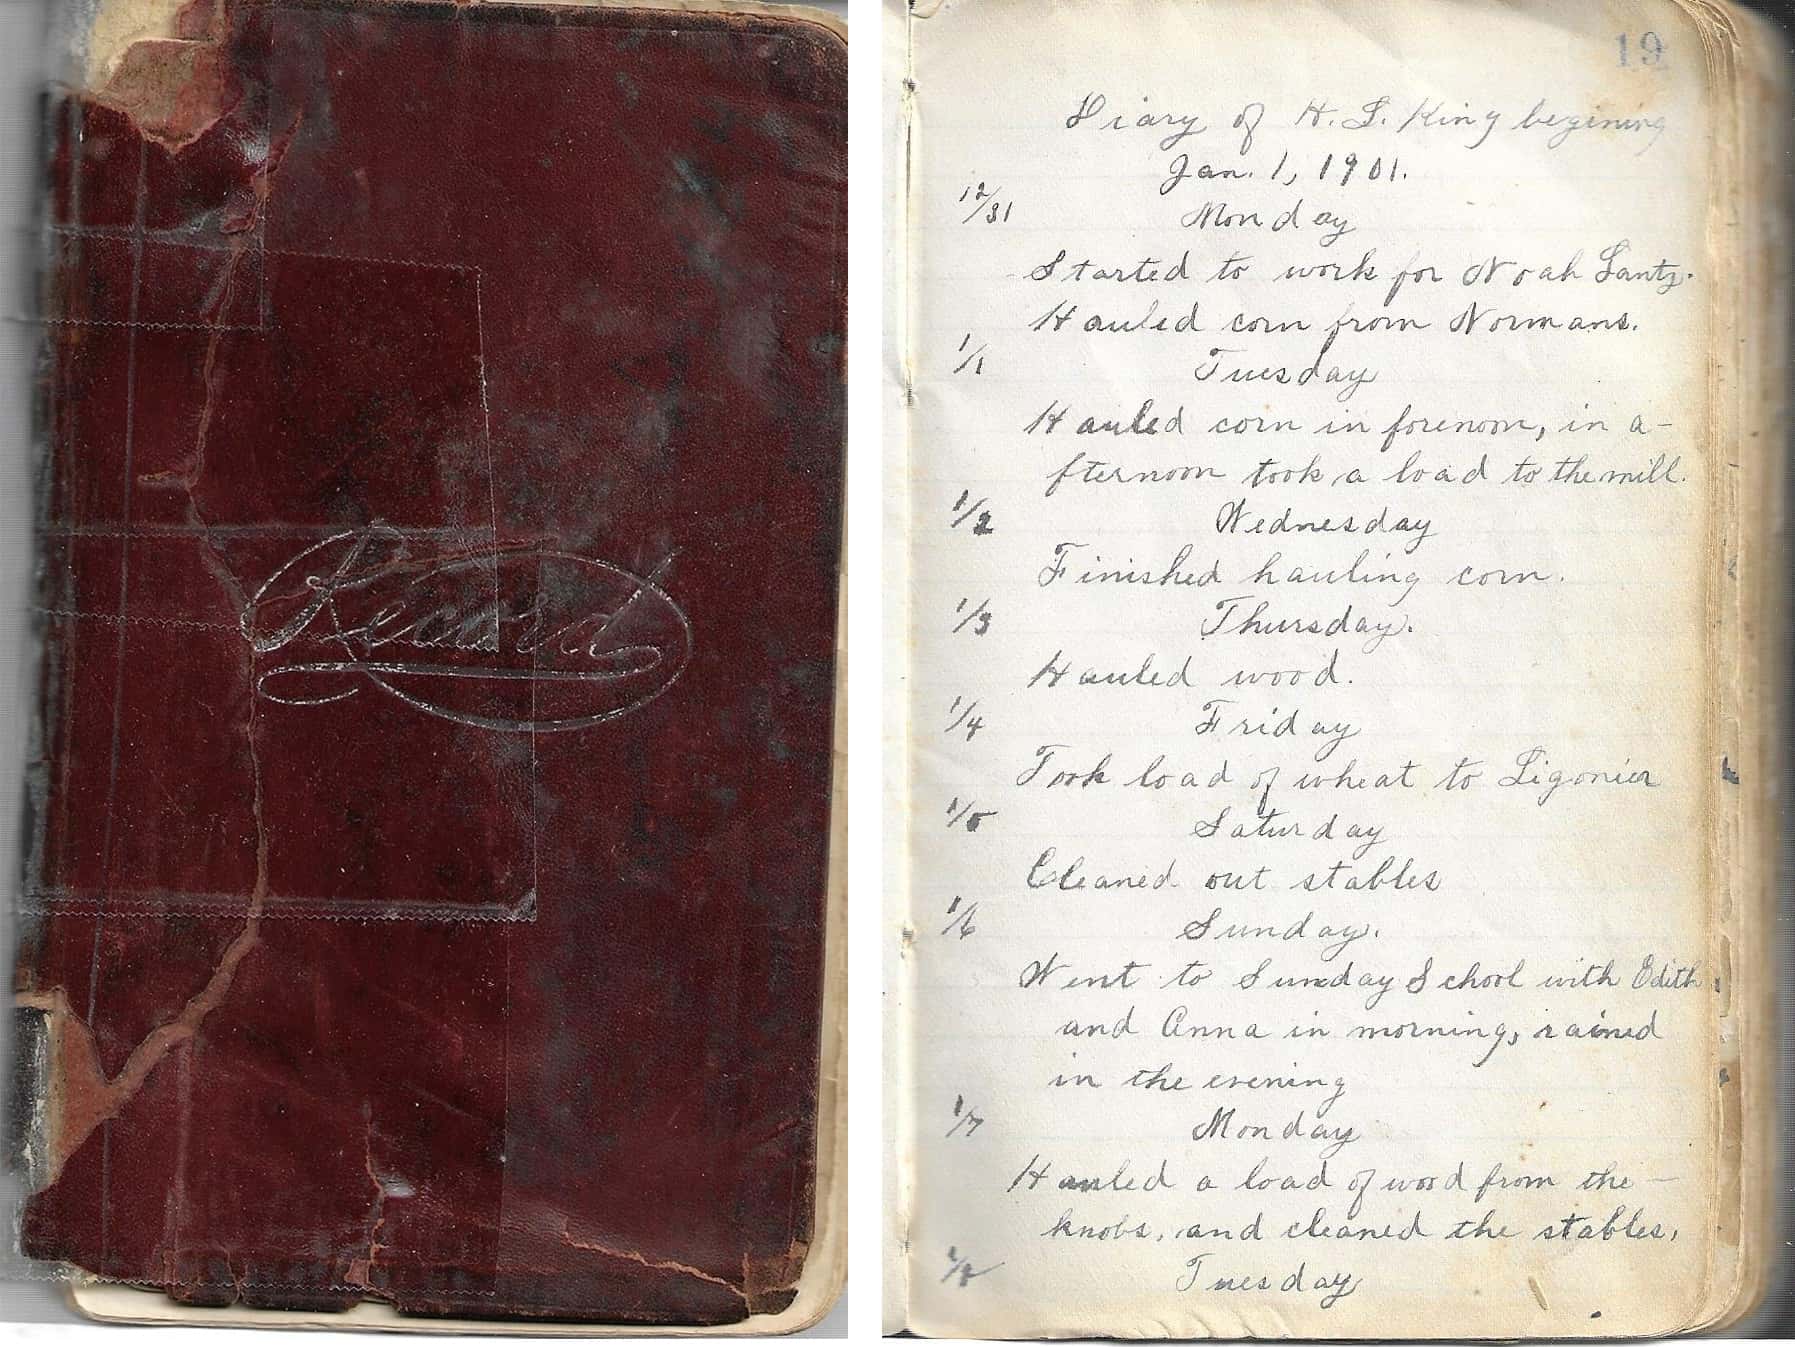 Record
19
Diary of H. L. King begining
Jan. 1, 1901.
12/31 Monday
Started to work for Noah Lantz.
Hauled corn from Normans.
1/1 Tuesday
Hauled corn in forenoon, in a-
fternoon took a load to the mill.
1/2 Wednesday
Finished hauling corn.
1/3 Thursday.
Hauled wood.
1/4 Friday
Took load of wheat to Ligonier
1/5 Saturday
Cleaned out stables
1/6 Sunday.
Went to Sunday School with Edith
and Anna in morning, rained
in the evening
1/7 Monday
Hauled a load of wood from the
knobs, and cleaned the stables,
1/8 Tuesday